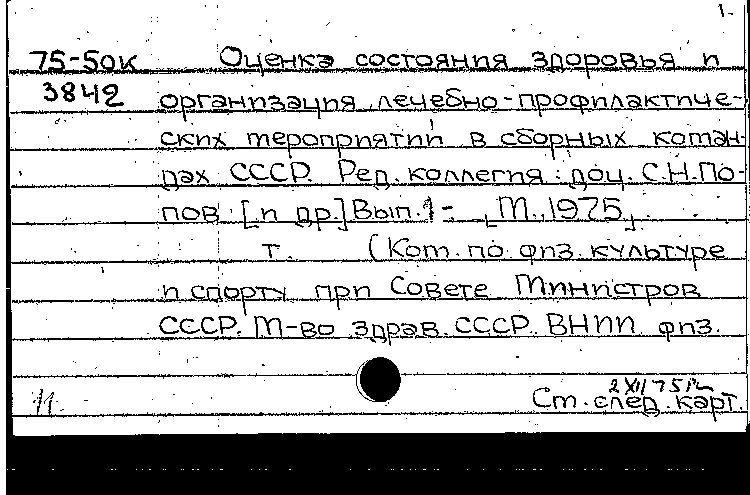 1-
75-50к Оценка состояния здоровья и
3842 организация лечебно-профилактиче-
ских мероприятий в сборных коман-
дах СССР. Ред. коллегия: доц. С.Н. По-
пов [и др.] Вып. 1- М., 1975
т. (Ком. по физ. культуре
и спорту при Совете Министров
СССР. М-во здрав. СССР. ВНИИ физ.
2 XII 75
См. след. карт.